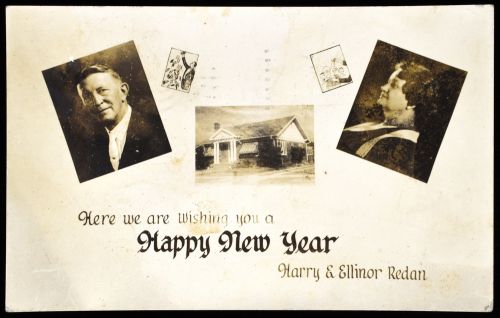 Here we are Wishing you a
Happy New Year
Harry & Ellinor Redan